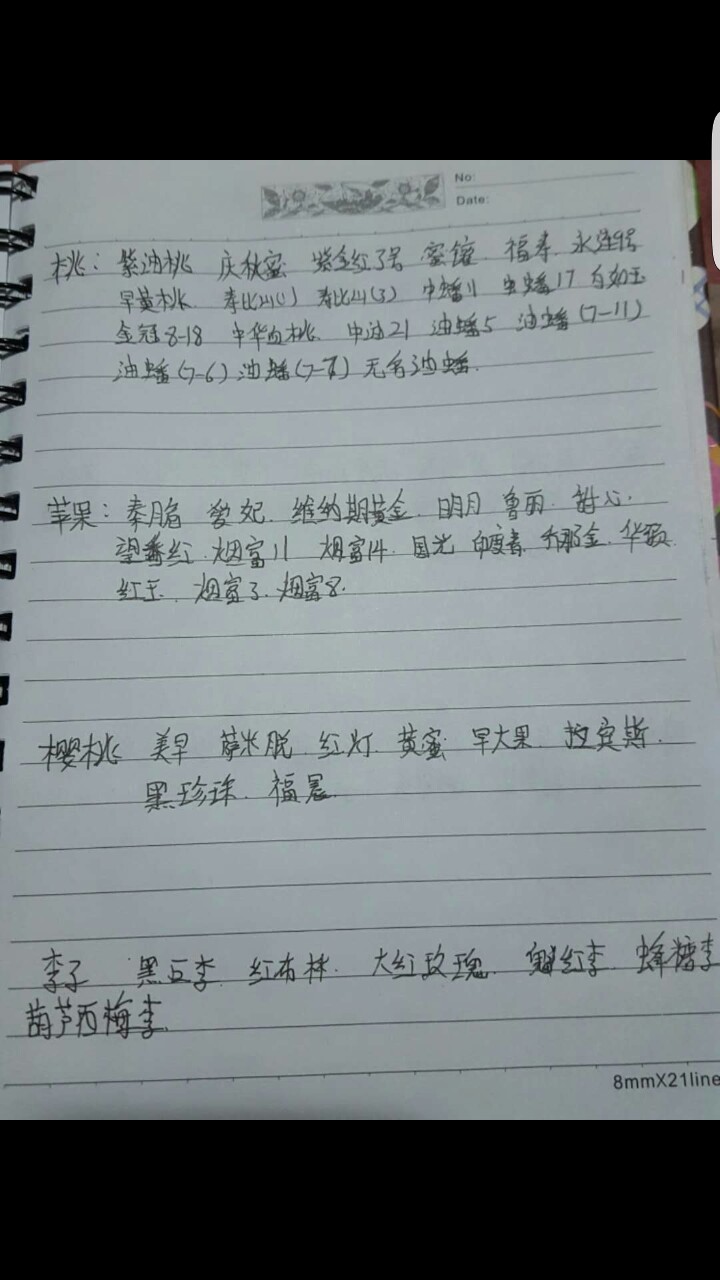 No:
Date:
桃: 紫油桃 庆秋蜜 紫金红3号 蜜馕 福寿 永莲9号
早黄桃 泰比山(1) 泰比山(3) 中蟠11 中蟠17 白如玉
金冠8-18 中华血桃 中油21 油蟠5 油蟠(7-11)
油蟠(7-6) 油蟠(7-7) 无名油蟠.
苹果: 秦脂 爱妃. 维纳期黄金. 明月 鲁丽. 甜心.
望香红. 烟富11 烟富14. 国光 印度青. 乔那金. 华硕.
红玉. 烟富3. 烟富8.
樱桃 美早 萨米脱 红灯. 黄蜜. 早大果. 拉宾斯.
黑珍珠. 福晨.
李子 黑豆李. 红布林. 大红玫瑰. 红李. 蜂糖李
葫芦西梅李.
8mmX21line